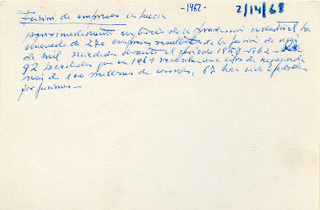 Fusión de empresas en Suecia -1962- 2/14/68
aproximadamente un tercio de la producción industrial ha
emanado de 270 empresas resultantes de la fusión de más
de mil sociedades durante el período 1949-1962
92 sociedades que en 1961 realizaban una cifra de negocios de
más de 100 millones de coronas, 67 han sido afectadas
por fusiones